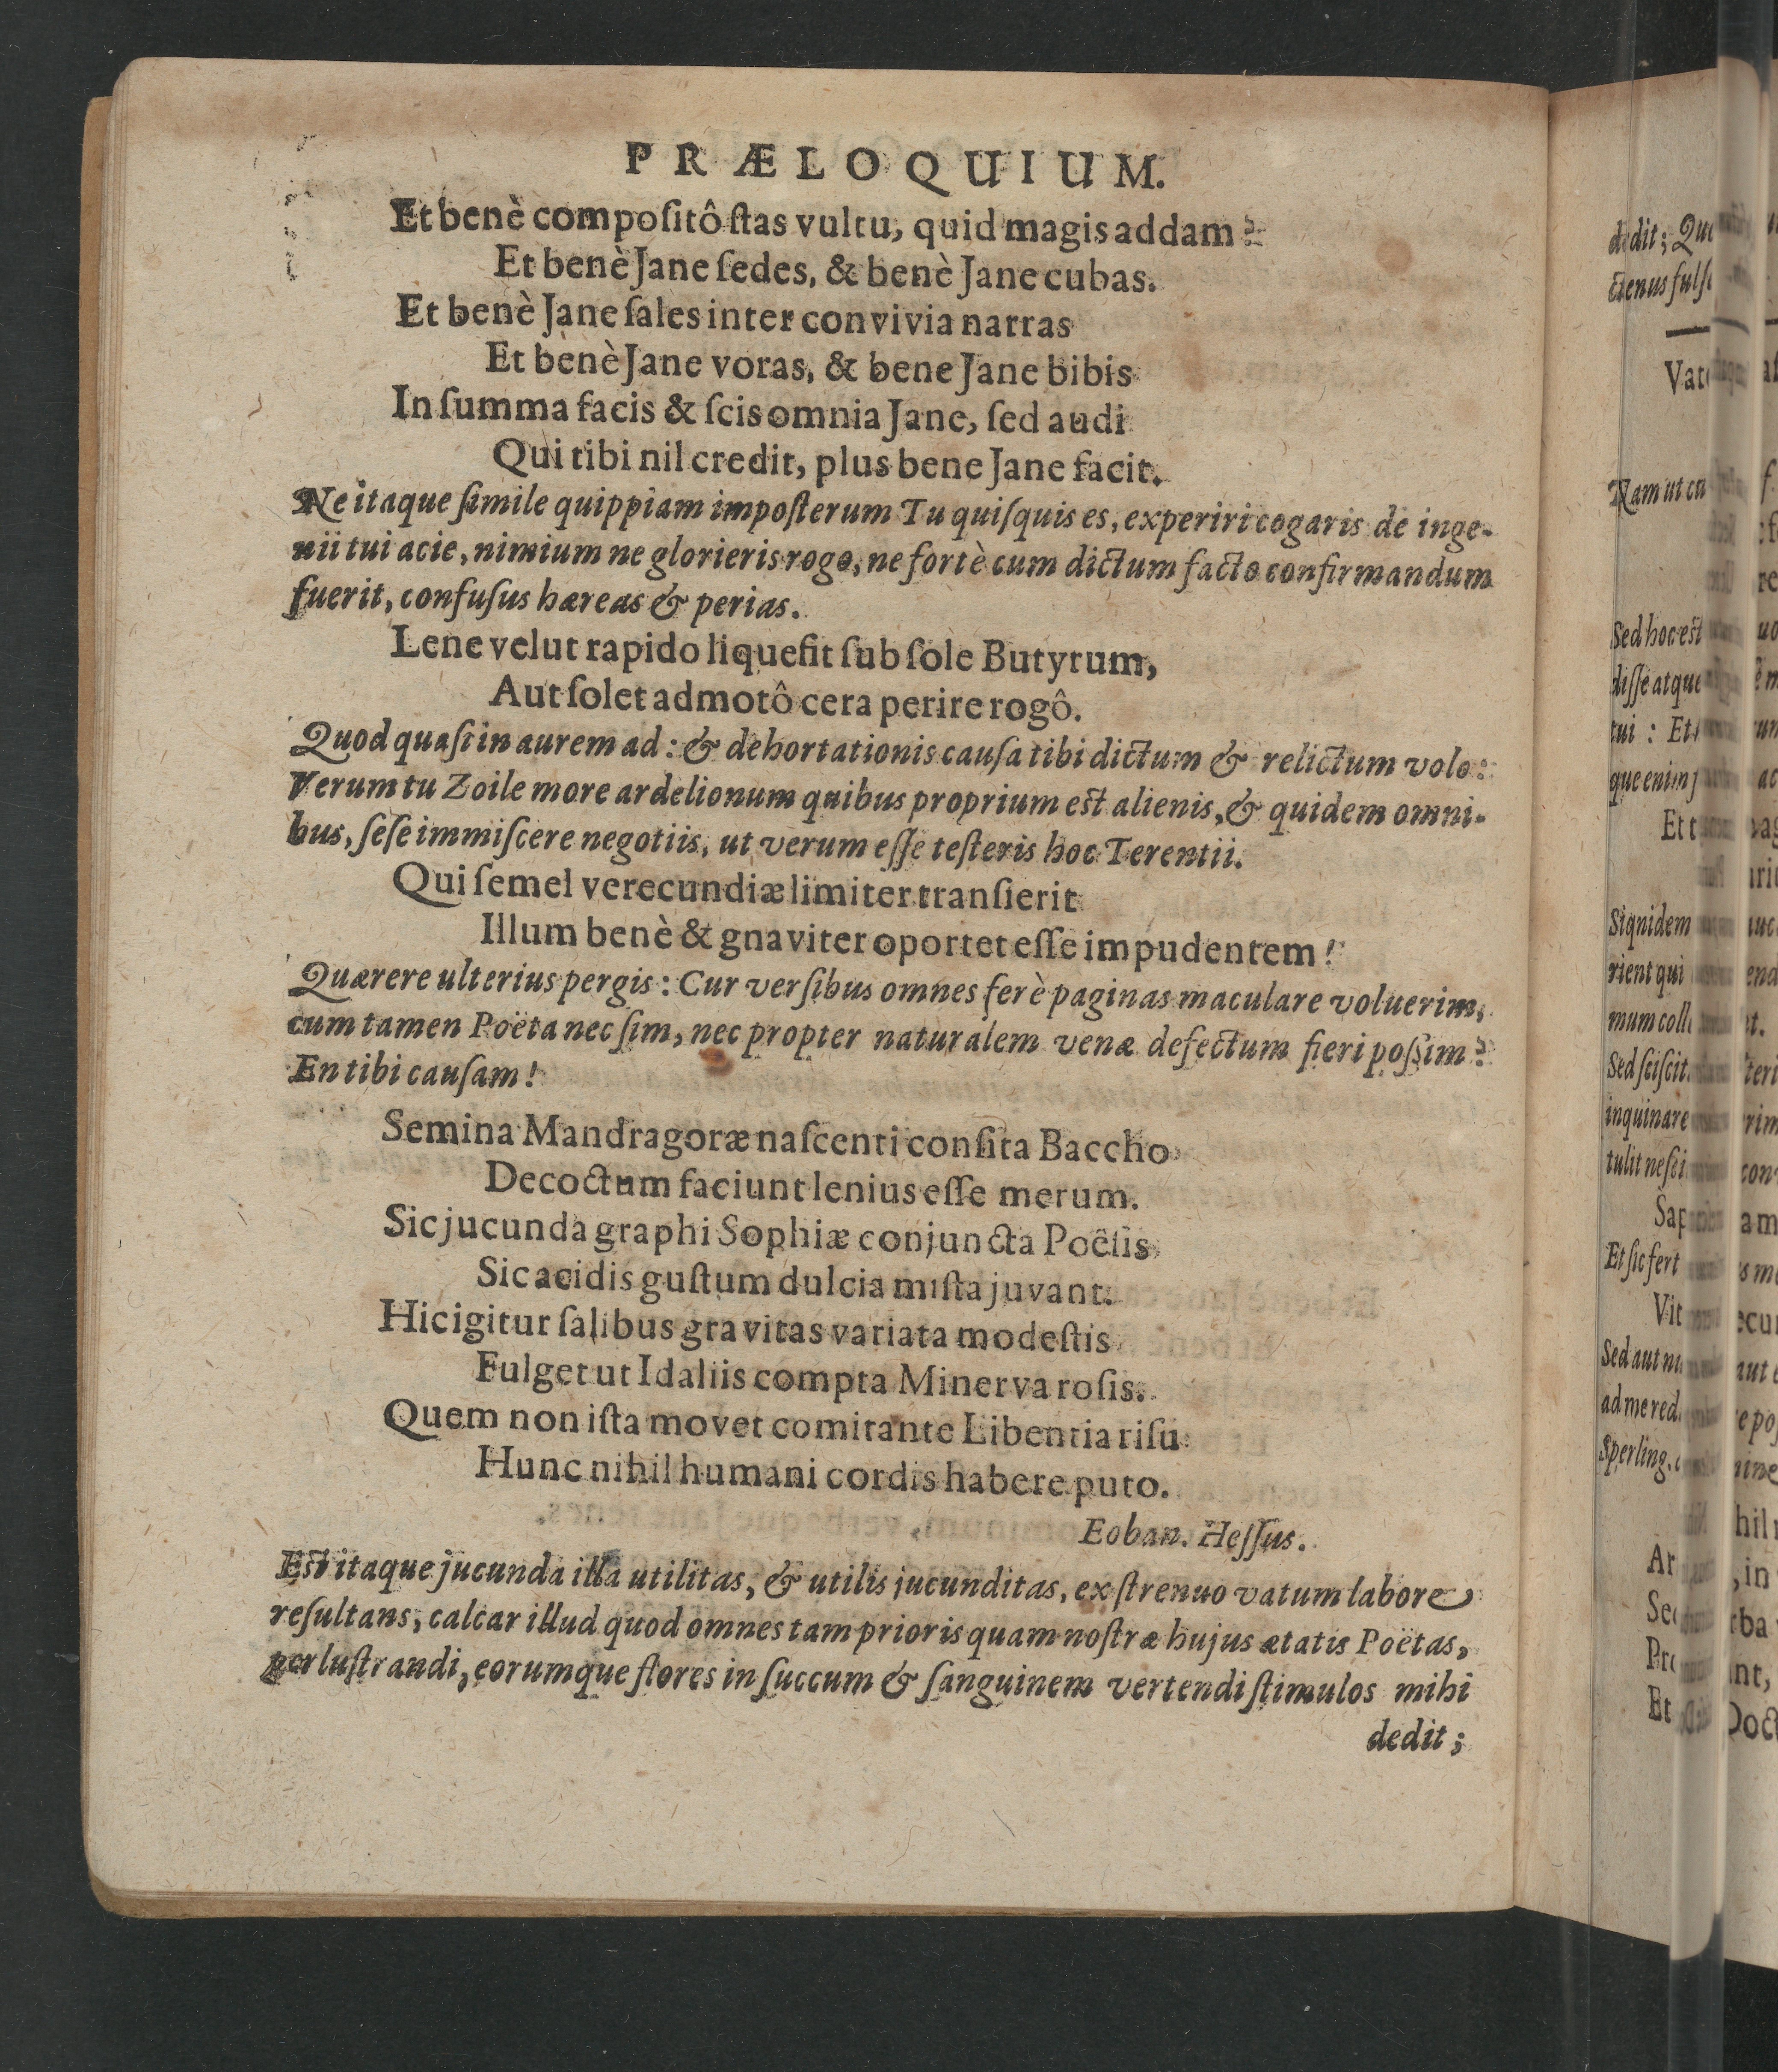 PRÆLOQUIUM.
Et benè compoſitô ſtas vultu, quid magis addam?
Et benè Jane ſedes, & benè Jane cubas.
Et benè Jane ſales inter convivia narras
Et benè Jane voras, & bene Jane bibis
In ſumma facis & ſcis omnia Jane, ſed audi
Qui tibi nil credit, plus bene Jane facit.
Ne itaque ſimile quippiam impoſterum Tu quiſquis es, experiri cogaris de inge-
nii tui acie, nimium ne glorieris rogo, ne fortè cum dictum facto confirmandum
fuerit, confuſus hæreas & perias.
Lene velut rapido liquefit ſub ſole Butyrum,
Aut ſolet admotô cera perire rogô.
Quod quaſi in aurem ad: & dehortationis cauſa tibi dictum & relictum volo:
Verum tu Zoile more ardelionum quibus proprium est alienis, & quidem omni-
bus, ſeſe immiſcere negotiis, ut verum eſſe teſteris hoc Terentii.
Qui ſemel verecundiæ limiter tranſierit
Illum benè & gnaviter oportet eſſe impudentem!
Quærere ulterius pergis: Cur verſibus omnes ferè paginas maculare voluerim,
cum tamen Poëta nec ſim, nec propter naturalem venæ defectum fieri poſsim?
En tibi cauſam!
Semina Mandragoræ naſcenti conſita Baccho
Decoctum faciunt lenius eſſe merum.
Sic jucunda graphi Sophiæ conjuncta Poëſis
Sic acidis guſtum dulcia miſta juvant.
Hic igitur ſalibus gravitas variata modeſtis
Fulget ut Idaliis compta Minerva roſis.
Quem non iſta movet comitante Libentia riſu
Hunc nihil humani cordis habere puto.
Eoban. Heſſus.
Est itaque jucunda illa utilitas, & utilis jucunditas, ex ſtrenuo vatum labore
reſultans, calcar illud quod omnes tam prioris quam noſtræ hujus ætatis Poëtas,
perluſtrandi, eorumque flores in ſuccum & ſanguinem vertendi ſtimulos mihi
dedit;